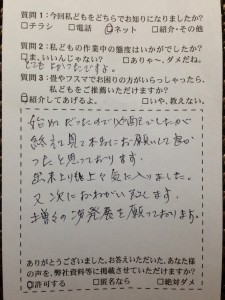 質問1:今回私どもをどちらでお知りになりましたか?
□チラシ □電話 □ネット □紹介・その他
質問2:私どもの作業中の態度はいかがでしたか?
□ま、いいんじゃない? □ありゃ〜、ダメだね。
とてもよかったですよ。
質問3:畳やフスマでお困りの方がいらっしゃったら、
私どもをご推薦いただけますか?
□紹介してあげるよ。 □いや、教えない。
始めだったので心配でしたが
終えて見て本当にお願いして良か
ったと思っております。
出来上り後上々気に入りました。
又次におねがい致します。
増々の御発展を願っております。
ありがとうございました。お答えいただいた、あなた様
の声を、弊社資料等に掲載させていただけますか?
□許可する □匿名なら □絶対ダメ